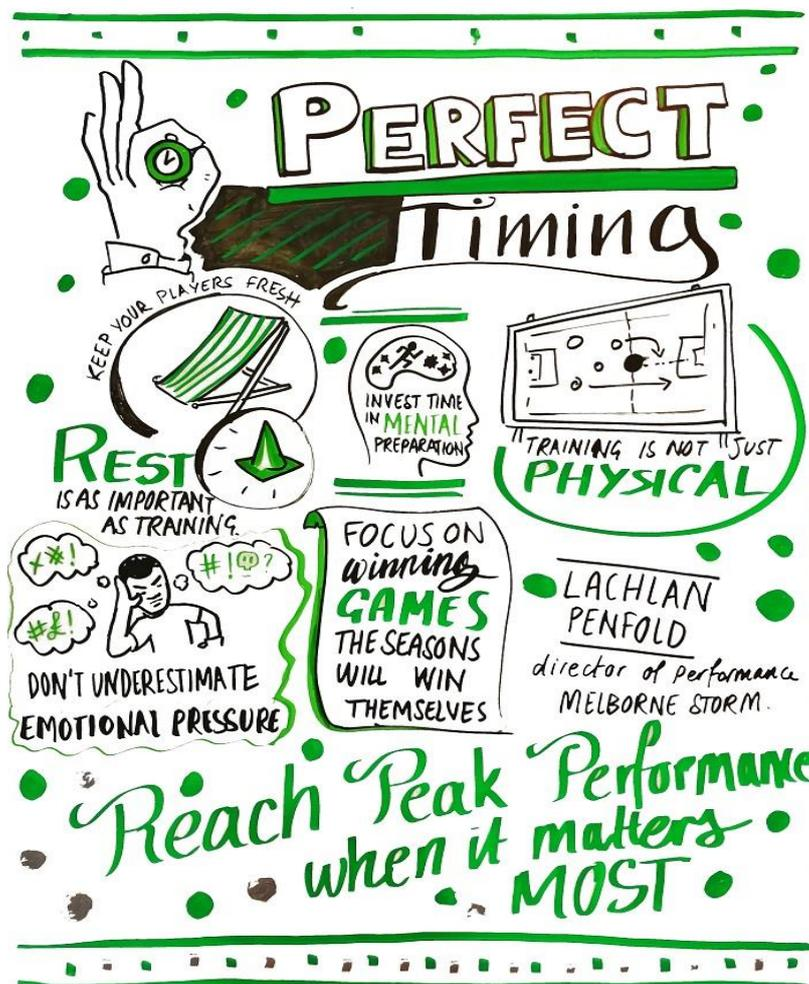 PERFECT
Timing
KEEP YOUR PLAYERS FRESH
REST
IS AS IMPORTANT
AS TRAINING.
INVEST TIME
IN MENTAL
PREPARATION
"TRAINING IS NOT "JUST
PHYSICAL
x*!
#!?
#£!
DON'T UNDERESTIMATE
EMOTIONAL PRESSURE
FOCUS ON
winning
GAMES
THE SEASONS
WILL WIN
THEMSELVES
LACHLAN
PENFOLD
director of performance
MELBORNE STORM.
Reach Peak Performance
when it matters
MOST